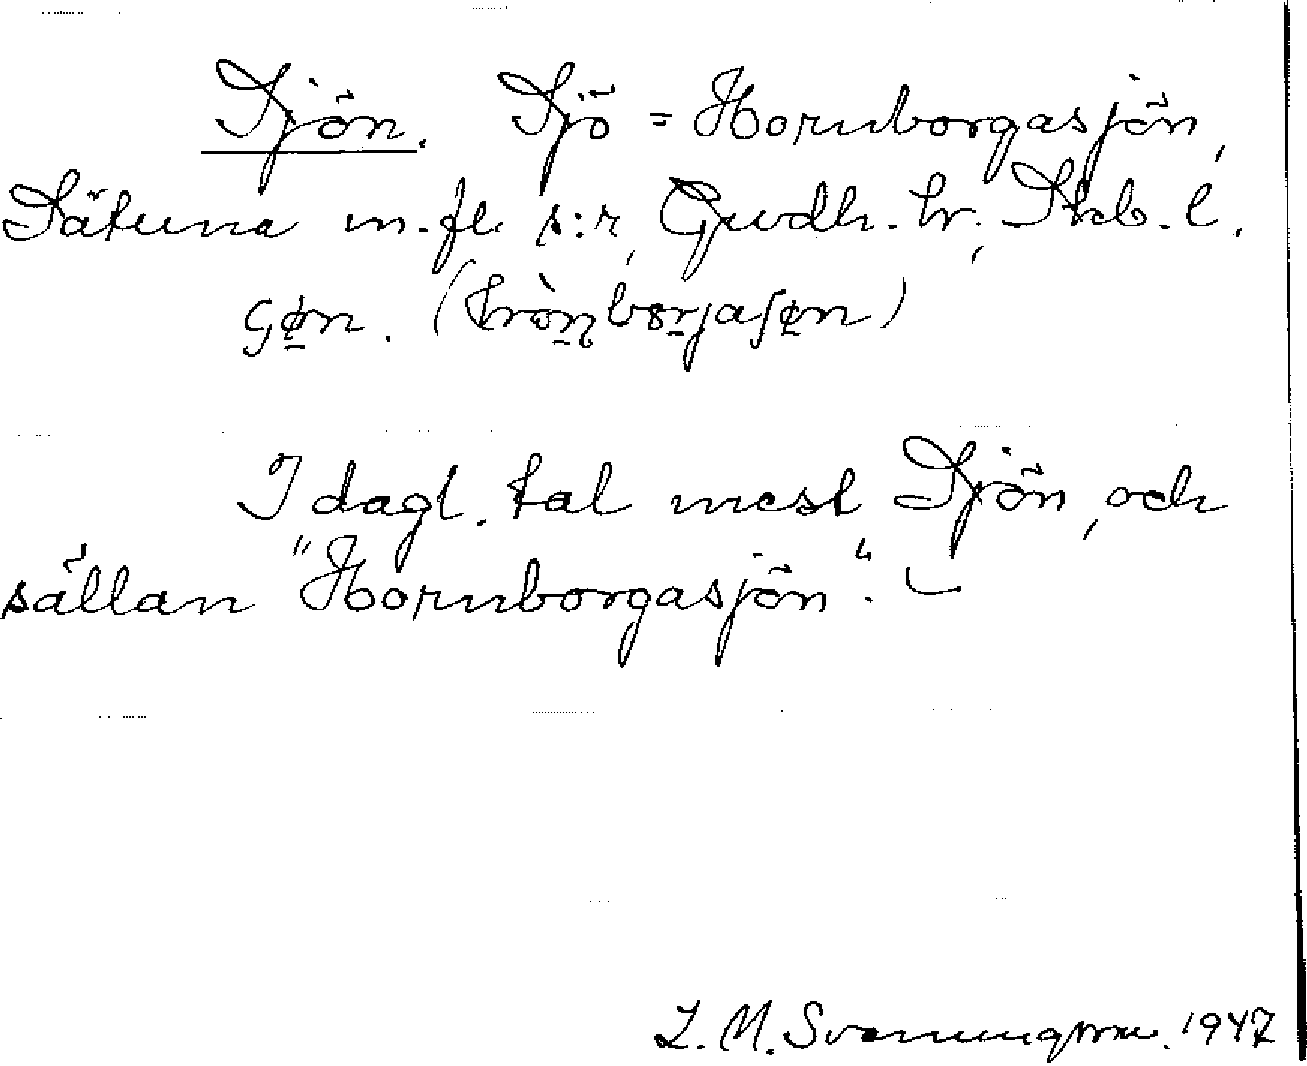 Sjön. Sjö = Hornborgasjön,
Sätuna m. fl. s:r, Gudh. hr., Skb. l.
I dagl. tal mest Sjön, och
sällan "Hornborgasjön". —
1947